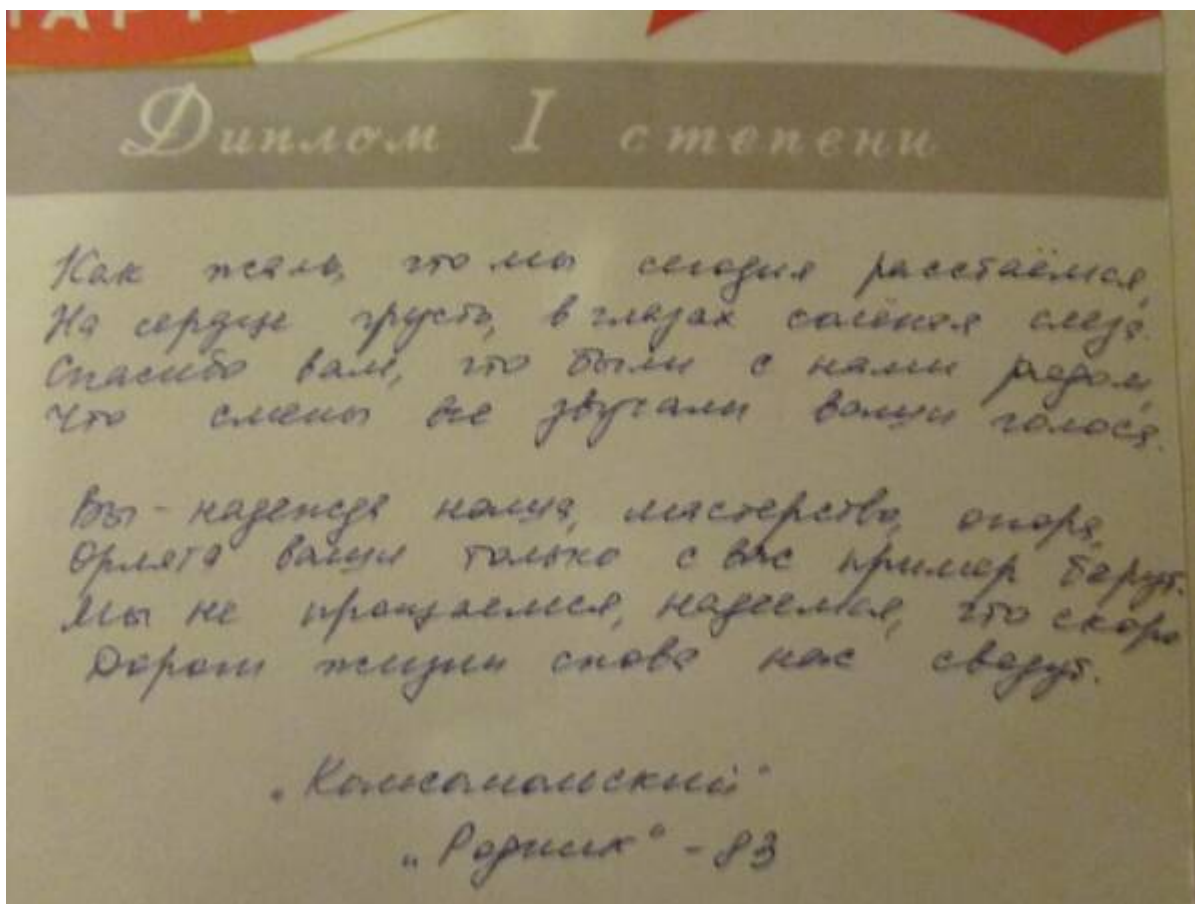 Диплом I степени
Как жаль, что мы сегодня расстаёмся,
На сердце грусть, в глазах солёная слеза.
Спасибо вам, что были с нами рядом,
Что смены все звучали ваши голоса.
Вы - надежда наша, мастерство, опора,
Орлята ваши только с вас пример берут.
Мы не прощаемся, надеемся, что скоро
Дороги жизни снова нас сведут.
„Комсомольский"
„Родник" - 83